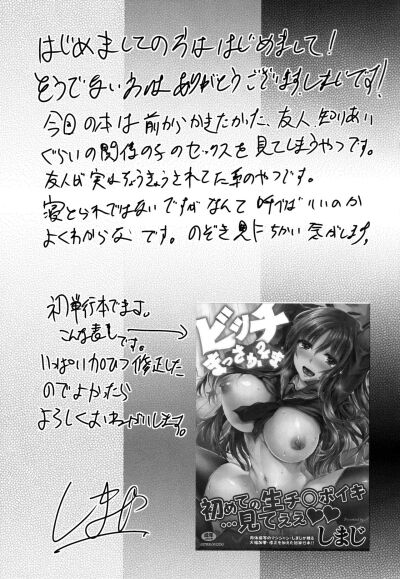 はじめましての方ははじめまして!
そうでない方はありがとうございます!しまじです!
今回の本は前からかきたかった、友人知りあい
ぐらいの関係の子のセックスを見てしまうやつです。
友人が実はちょうきょうされてた系のやつです。
寝とられではないですがなんて呼べばいいのか
よくわからないです。のぞき見にちかい気がします。
初単行本でます。
こんな表し
です。
いっぱい加ひつ修正した
のでよかったら
よろしくおねがいします。
しまじ
ビッチ
初めての生チ○ポイキ
…見てぇぇ♥♥
しまじ